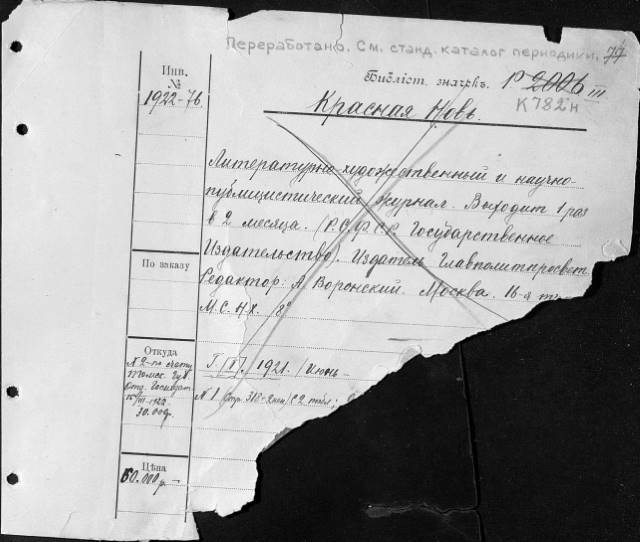 Переработано. См. станд. каталог периодики. 77
Инв.
№
1922-76.
Библіот. значекъ. P 2006 III
К 782 н
Красная Новь.
Литературно-художественный и научно-
публицистический журнал. Выходит 1 раз
в 2 месяца. (Р.С.Ф.С.Р. Государственное
Издательство). Издатель Главполитпросвет.
Редактор: А. Воронский. Москва. 16-я
М.С.Н.Х. 8°
По заказу
Откуда
№ 2-по счету
Госиздат
1922
30.000р.
Г. I. 1921. (Июнь-
№ 1 (стр. 310-2нен)
Цѣна
50.000р-